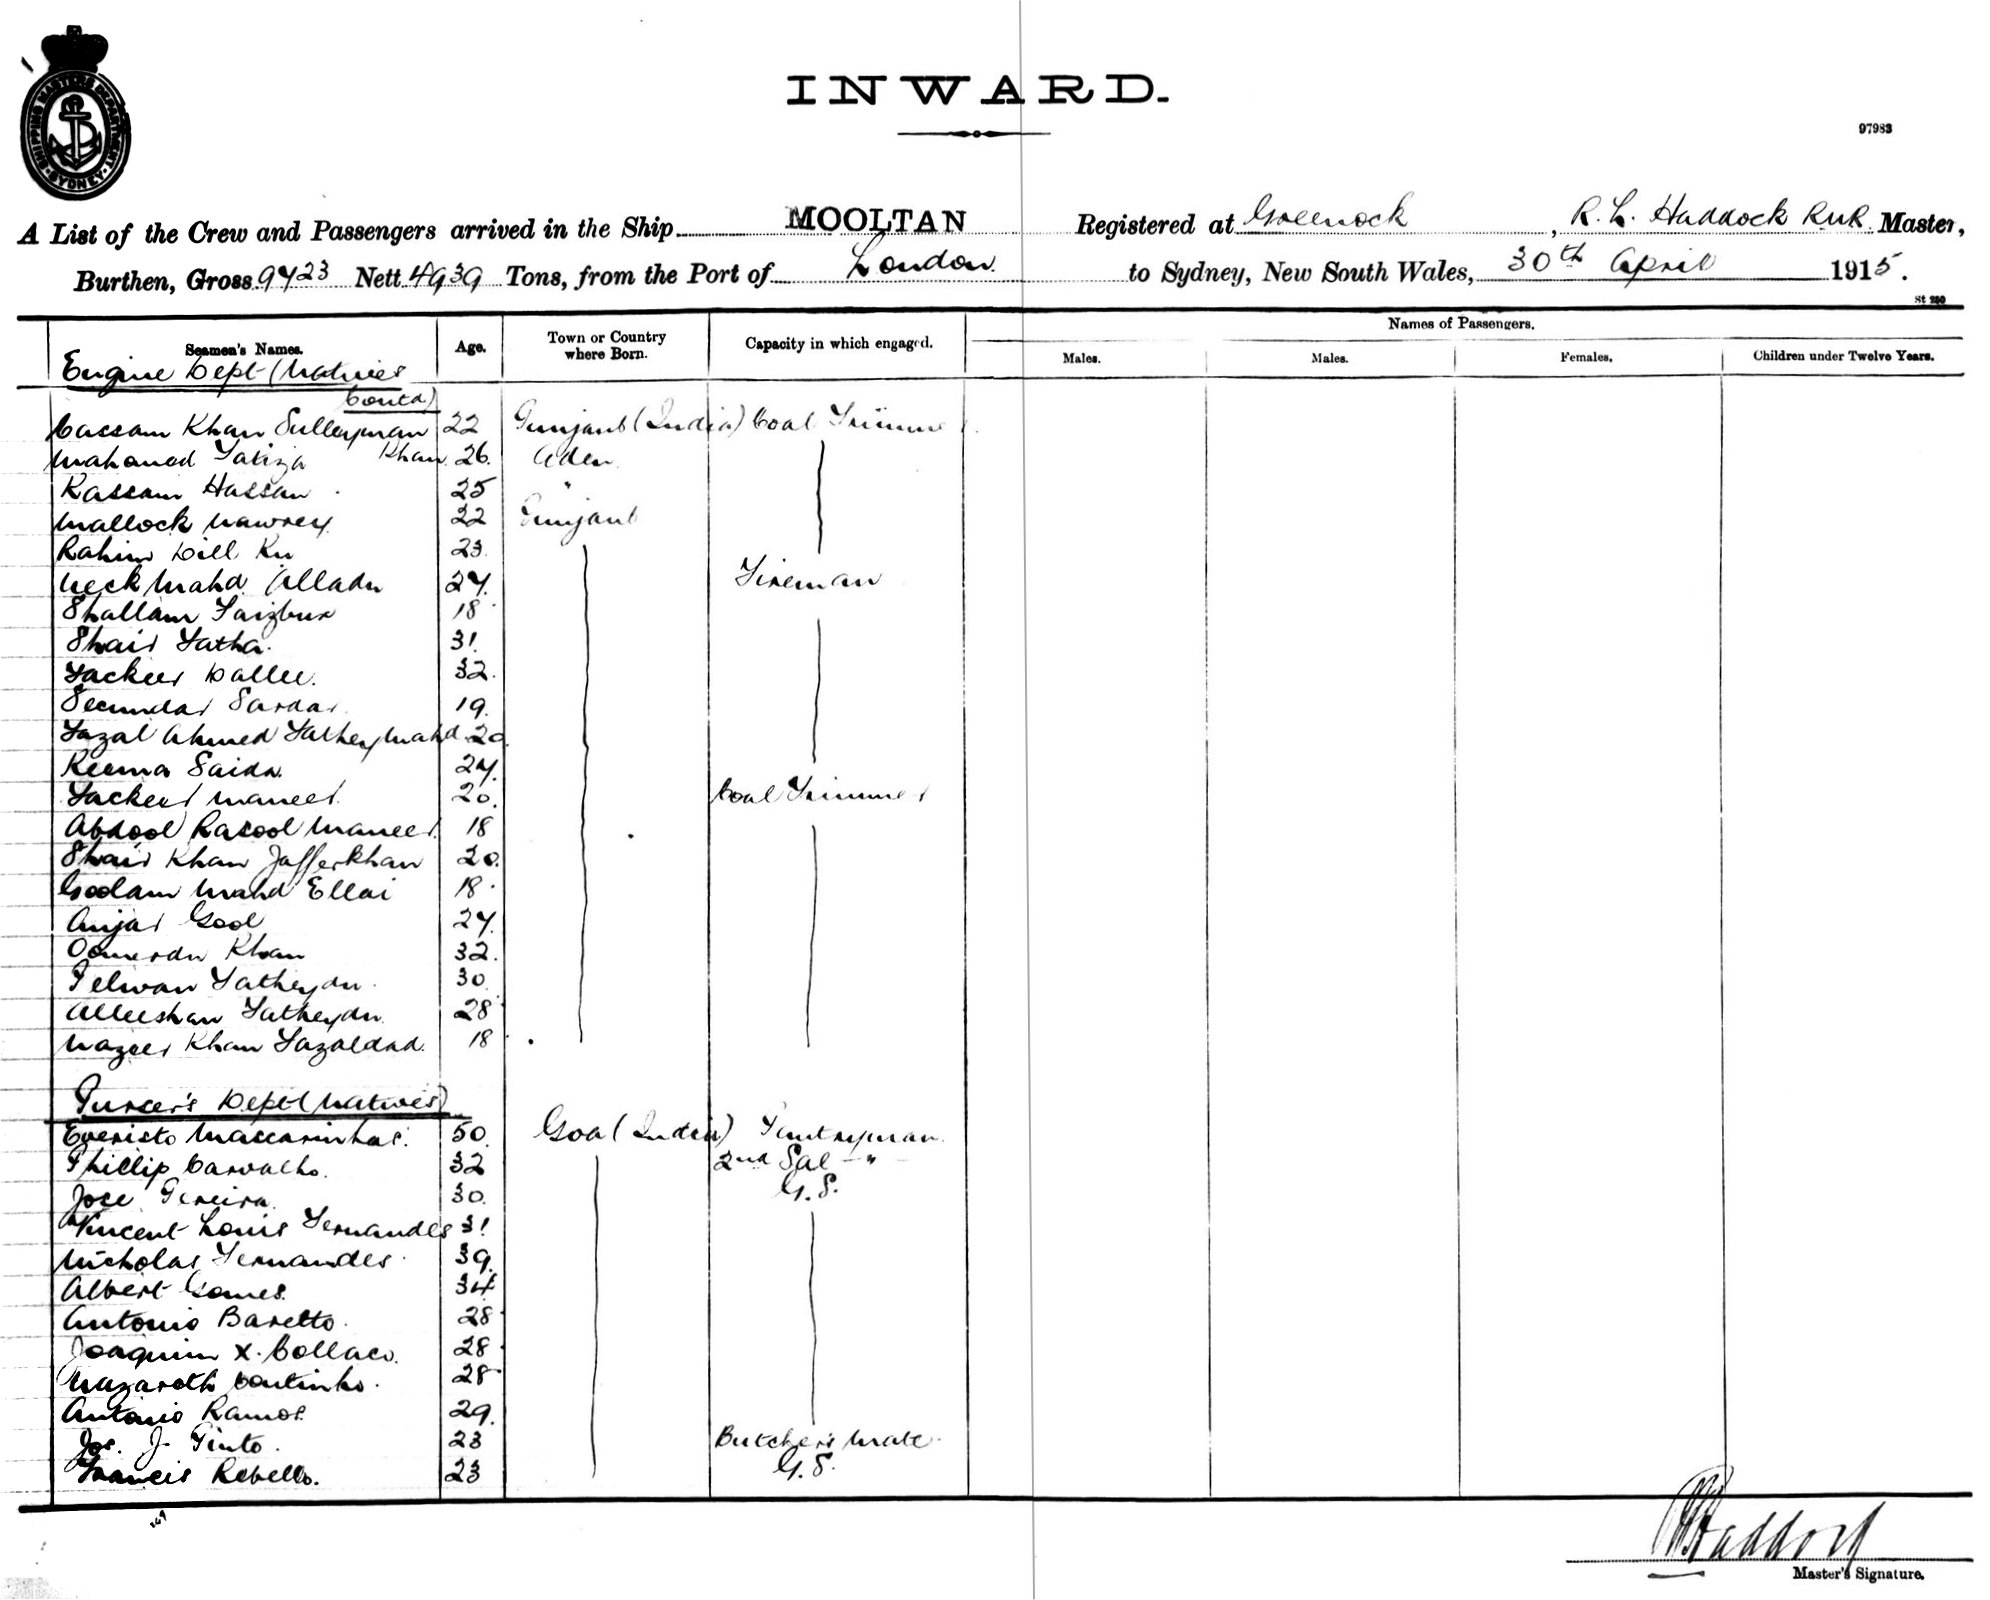 SHIPPING MASTERS DEPARTMENT SYDNEY
INWARD.
97983
A List of the Crew and Passengers arrived in the Ship MOOLTAN Registered at Greenock, R. L. Haddock RNR. Master,
Burthen, Gross 9723 Nett 4939 Tons, from the Port of London to Sydney, New South Wales, 30th April 1915.
St 250
Seamen's Names. Age. Town or Country where Born. Capacity in which engaged. Names of Passengers.
Males. Males. Females. Children under Twelve Years.
Engine Dept (Natives
Contd)
Cassam Khan Sulleyman Khan 22 Punjaub (India) Coal Trimmer
Mahomed Fakiza 26 Aden
Kassam Hassan 25 "
Mallock Nawrey 22 Punjaub
Rahim Dill Ku 23
Neck Mahd Alladn 27 Fireman
Shallam Faizbux 18
Shair Fatha 31
Fackeer Dallee 32
Secundar Sardar 19
Fazal Ahmed Fathey Mahd 20
Keema Saidn 27
Fackeer Maneer 20 Coal Trimmer
Abdool Rasool Maneer 18
Shair Khan Jafferkhan 20
Goolam Mahd Ellai 18
Anjar Gool 27
Oomerdn Khan 32
Pelwan Fatheydn 30
Alleeshan Fatheydn 28
Nazeer Khan Fazaldad 18
Purser's Dept (Natives)
Everisto Maccarinhas 50 Goa (India) Pantryman
Phillip Carvalho 32 2nd Sal "
Jose Pereira 30 G.S.
Vincent Louis Fernandes 31
Nicholas Fernandes 39
Albert Gomes 34
Antonio Baretto 28
Joaquim X. Collaco 28
Nazareth Coutinho 28
Antonio Ramos 29
Jos. J. Pinto 23 Butcher's Mate
Francis Rebello 23 G.S.
Haddock
Master's Signature.